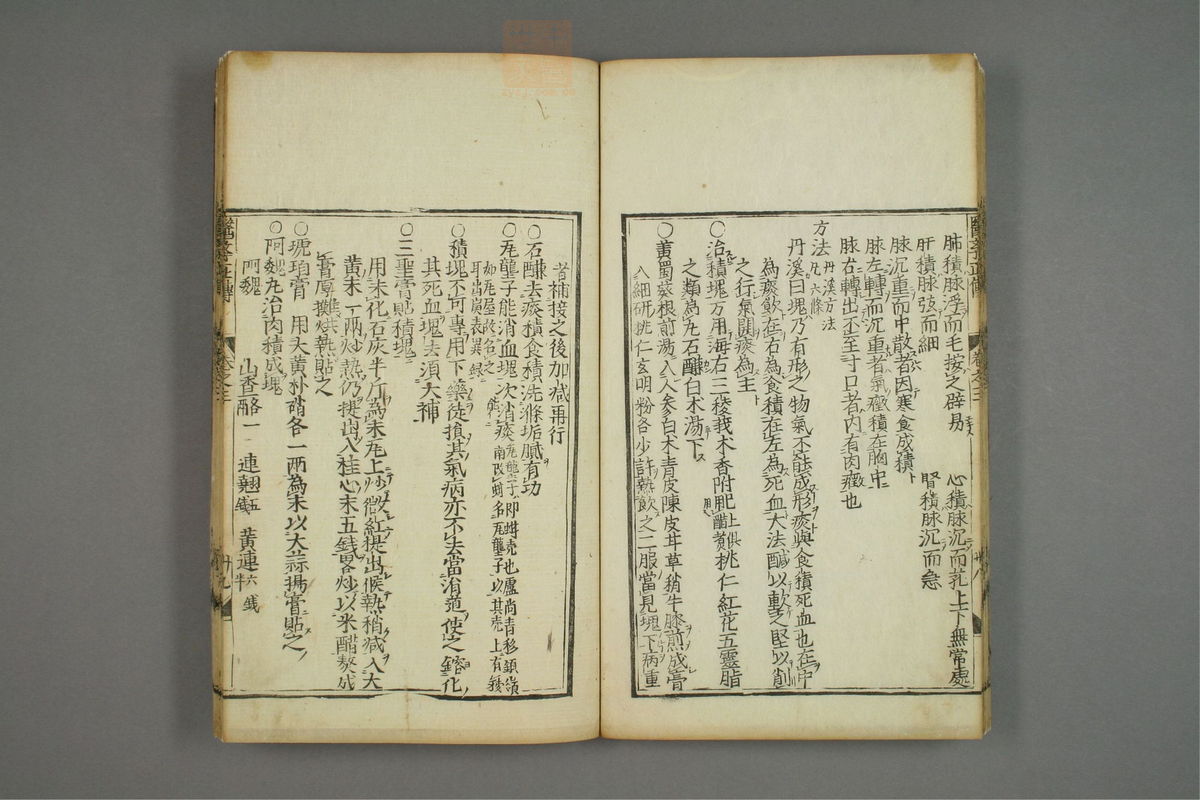 肺積脉浮而毛按之辟易　心積脉沉而芤上下無常處
肝積脉弦而細　腎積脉沉而急
脉沉重而中散者因寒食成積
脉左轉而沉重者氣癥積在胸中
脉右轉出不至寸口者内有肉癥也
方法 丹溪方法 凡六條
丹溪曰塊乃有形之物氣不能成形痰與食積死血也在中
為痰飲在右為食積在左為死血大法醎以軟之堅以削
之行氣開痰為主
○治積塊方用海石三稜莪朮香附 已上俱用醋煑 桃仁紅花五靈脂
之類為丸石醎白朮湯下
○黄蜀葵根煎湯入人參白朮青皮陳皮甘草稍牛膝煎成膏
入細研桃仁玄明粉各少許熱飲之二服當見塊下病重
者補接之後加减再行
○石醎去痰積食積洗滌垢膩有功
○瓦壟子能消血塊次消痰 瓦壟子即蚶壳也盧尚書移鎮嶺南改蚶名瓦壟子以其壳上有稜如瓦屋故名之與耳出嶺表異録
○積塊不可專用下藥徒損其氣病亦不去當消導使之鎔化
其死血塊去須大補
○三聖膏貼積塊
用未化石灰半斤為末瓦上炒微紅提出候熱稍减入大
黄末一兩炒熱仍提出入桂心末五錢畧炒以米醋熬成
膏厚攤烘熱貼之
○琥珀膏　用大黄朴硝各一兩為末以大蒜搗膏貼之
○阿魏丸治肉積成塊
阿魏　山查 各一兩　連翹 五錢　黄連 六錢半
醫學正傳　卷之三　廿八
醫學正傳　卷之三　廿九